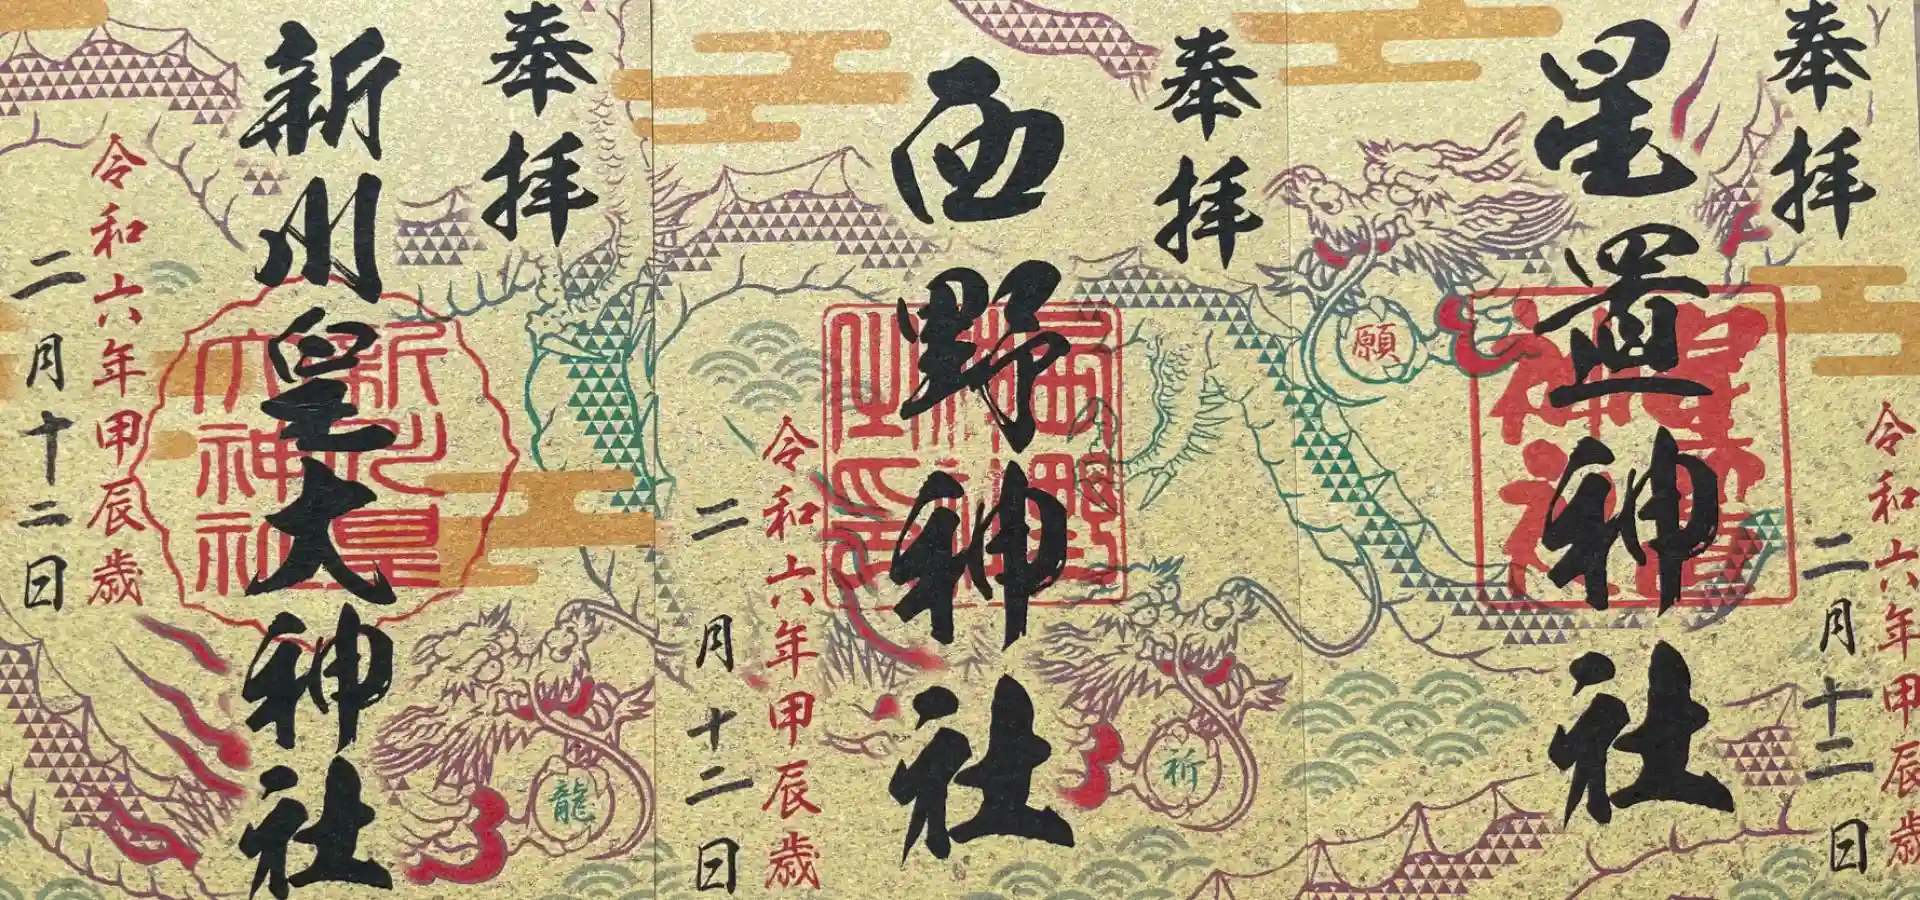 奉拝
星置神社
願
令和六年甲辰歳
二月十二日
奉拝
西野神社
祈
令和六年甲辰歳
二月十二日
奉拝
新川皇大神社
龍
令和六年甲辰歳
二月十二日
新川皇
大神社